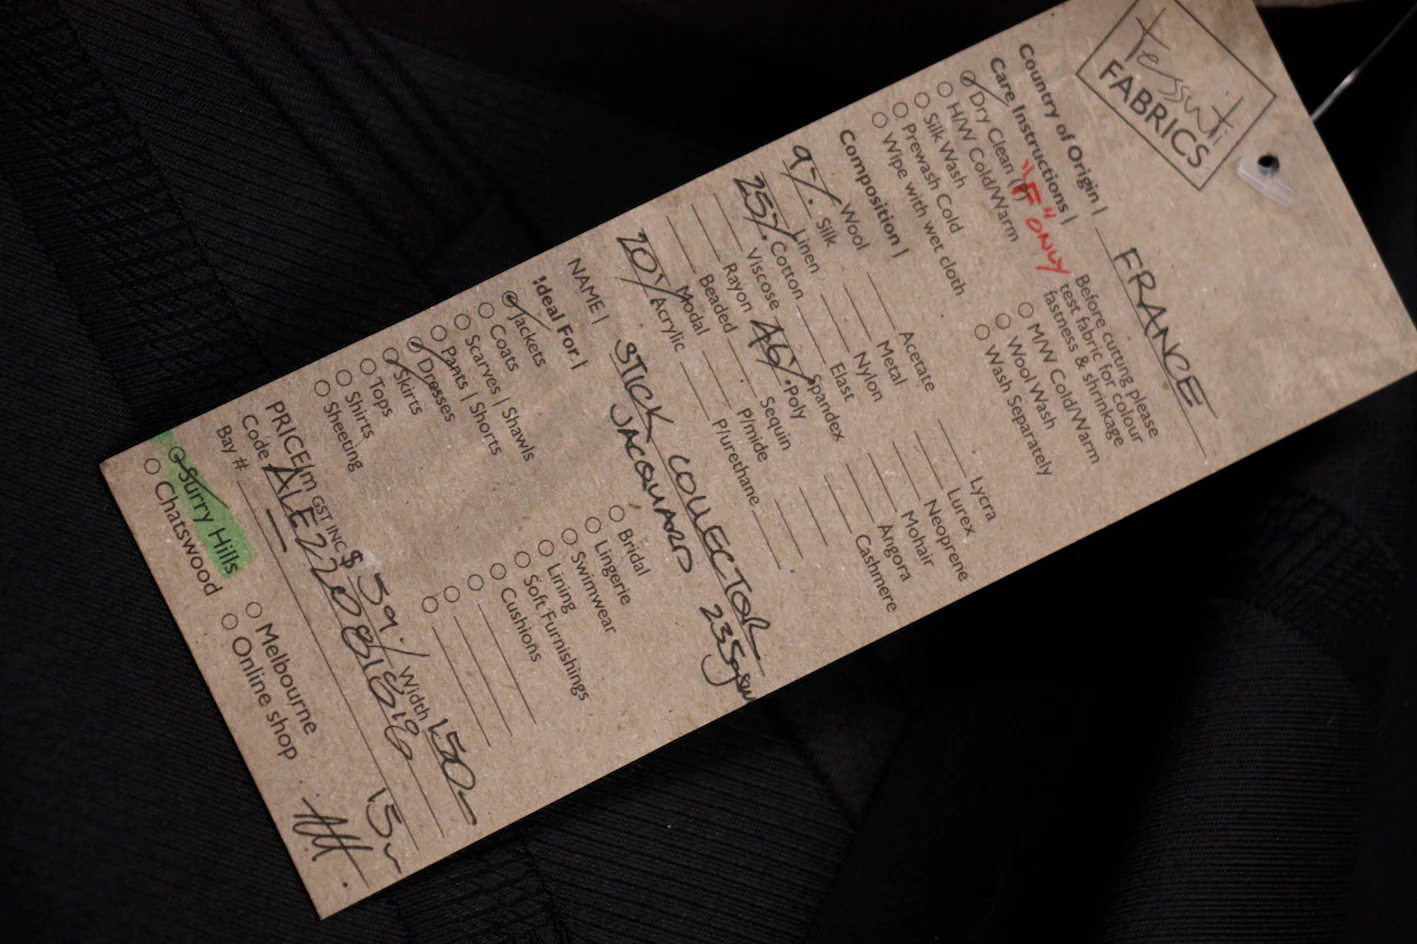 tessuti
FABRICS
Country of Origin | FRANCE
Care Instructions |
Dry Clean "F" ONLY
H/W Cold/Warm
Silk Wash
Prewash Cold
Wipe with wet cloth
Before cutting please
test fabric for colour
fastness & shrinkage
M/W Cold/Warm
Wool Wash
Wash Separately
Composition |
Wool
9% Silk
Linen
25% Cotton
Viscose
Rayon
Beaded
Modal
20% Acrylic
Acetate
Metal
Nylon
Elast
Spandex
46% Poly
Sequin
P/mide
P/urethane
Lycra
Lurex
Neoprene
Mohair
Angora
Cashmere
NAME | STICK COLLECTOR
JACQUARD 235gsm
Ideal For |
Jackets
Coats
Scarves | Shawls
Pants | Shorts
Dresses
Skirts
Tops
Shirts
Sheeting
Bridal
Lingerie
Swimwear
Lining
Soft Furnishings
Cushions
PRICE/m GST INC $ 59 Width 150
Code
Bay #
Surry Hills
Chatswood
Melbourne
Online shop